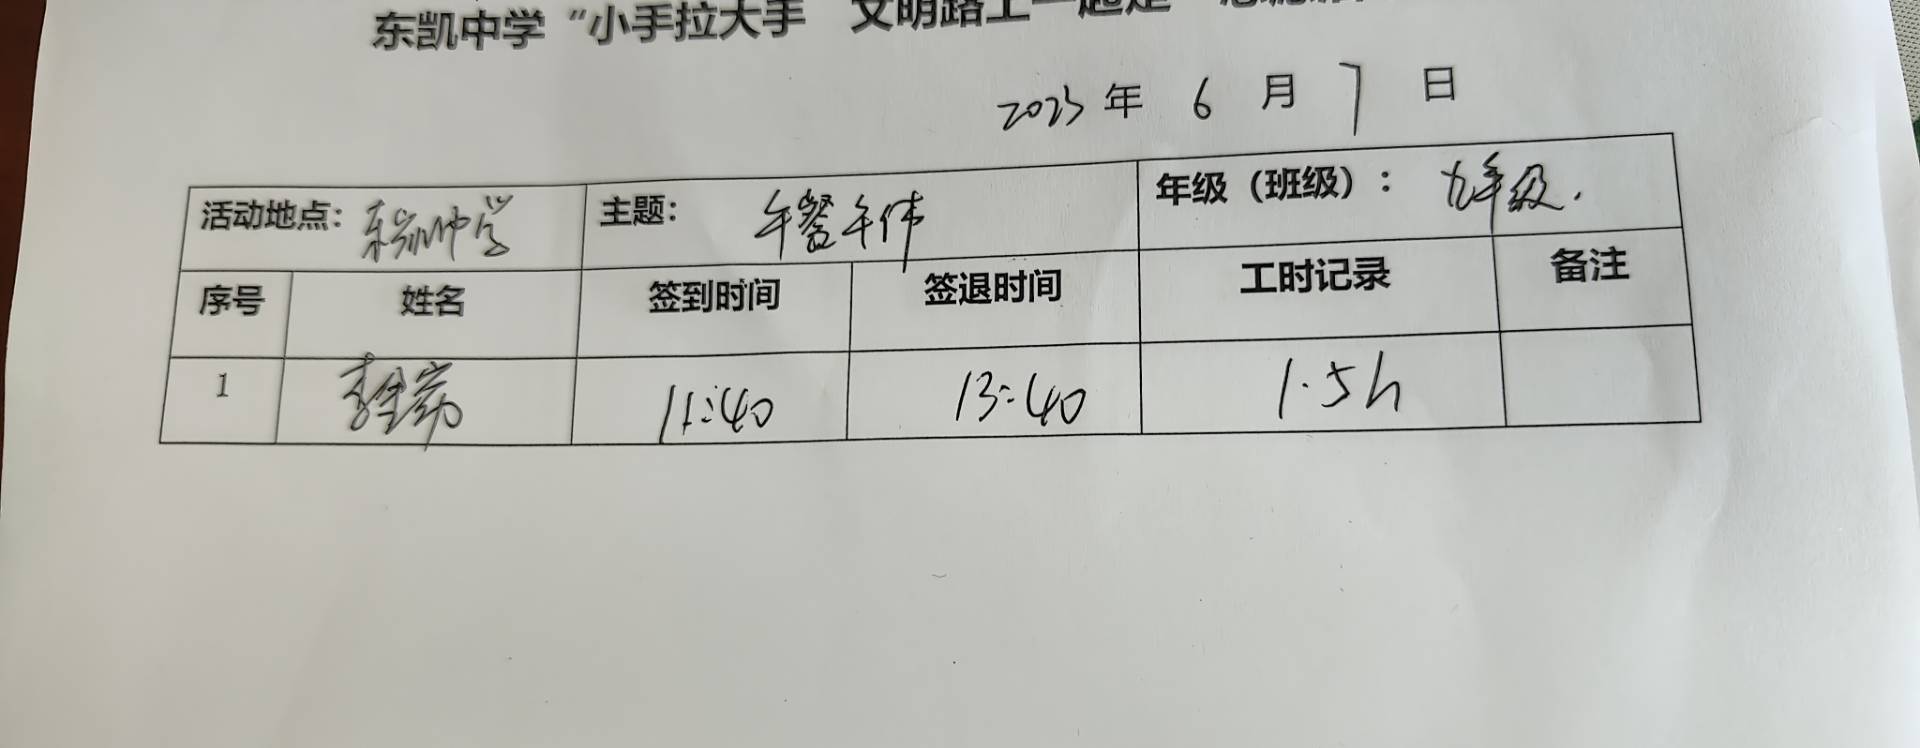 东凯中学“小手拉大手 文明路上一起走”
2023年 6 月 7 日
活动地点：东凯中学 主题：午餐午休 年级（班级）：九年级.
序号 姓名 签到时间 签退时间 工时记录 备注
1 11:40 13:40 1.5h